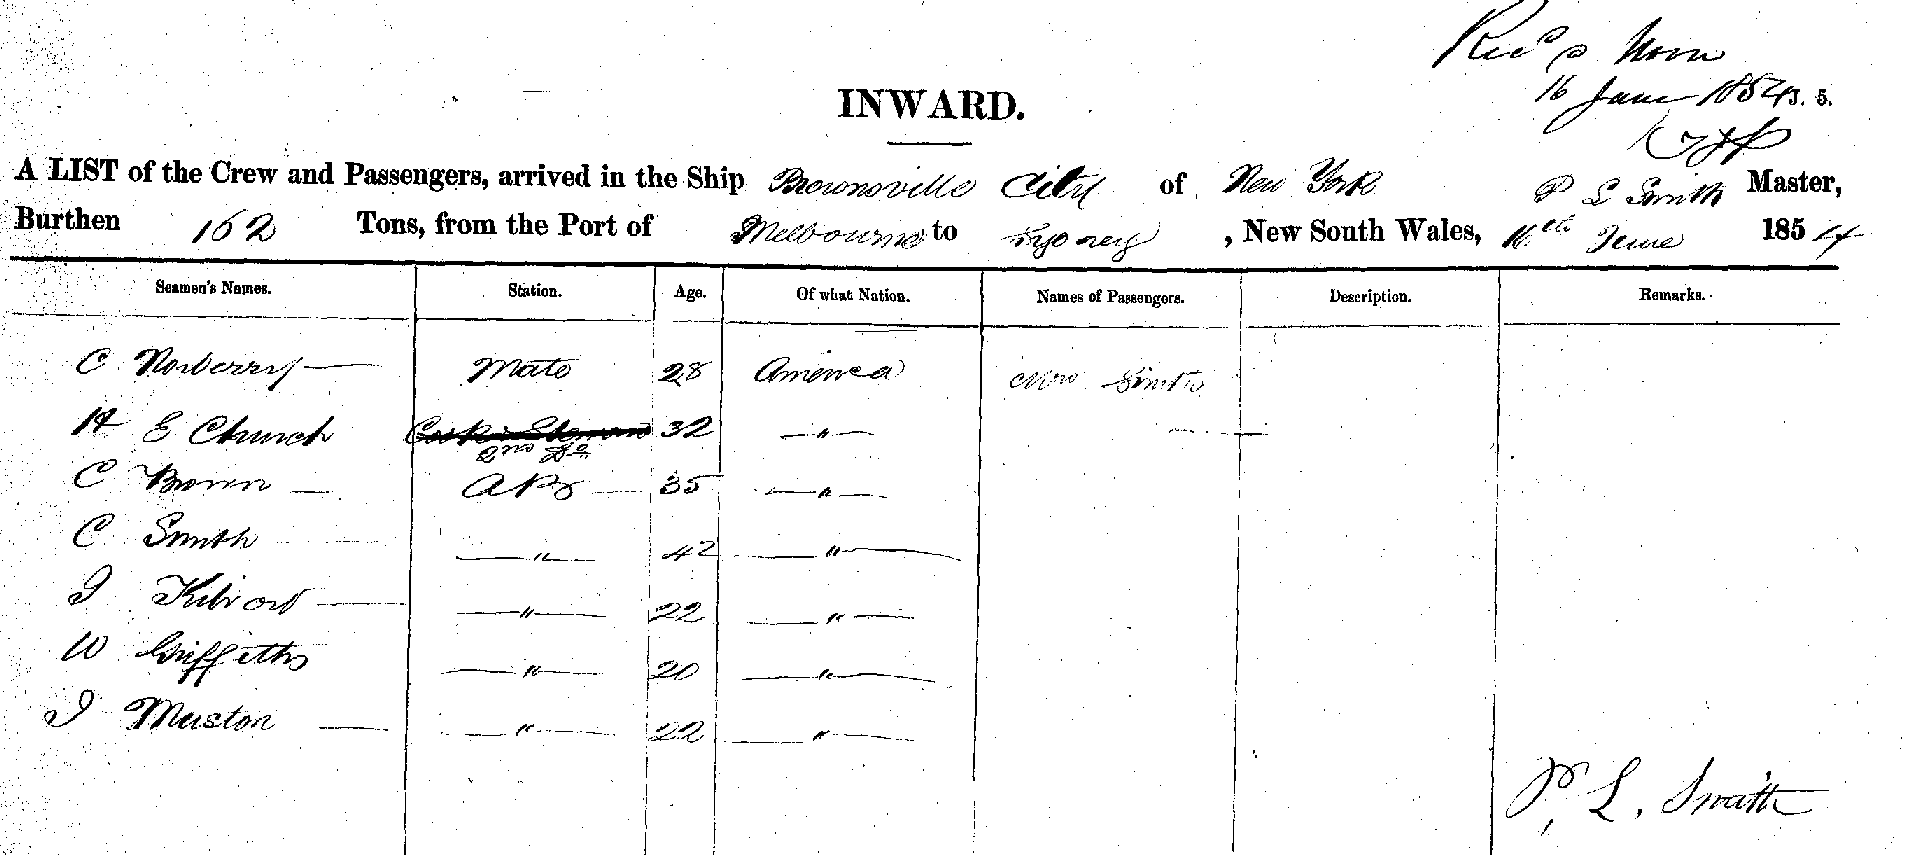 Recd Noon
16 June 1854 3. 5.
INWARD.
A LIST of the Crew and Passengers, arrived in the Ship Brownsville City of New York P L Smith Master,
Burthen 162 Tons, from the Port of Melbourne to Sydney, New South Wales, 16th June 1854
Seamen's Names. Station. Age. Of what Nation. Names of Passengers. Description. Remarks.
C Norberry — Mate 28 America Mrs Smith
H E Church Cook & Steward 32 — " —
2nd Do
C Brown — AB — 35 — " —
C Smith — " — 42 — " —
J — " — 22 — " —
W Griffeths — " — 20 — " —
J Muston — — " — 22 — " —
P. L. Smith